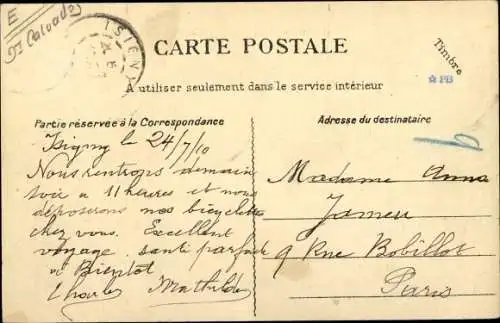 E
Dt Calvados
ISIGNY
CARTE POSTALE
Timbre
☆PB
A utiliser seulement dans le service intérieur
Partie réservée à la Correspondance
Adresse du destinataire
Isigny le 24/7/10
Nous rentrons demain
soir a 11 heures et nous
déposerons nos bicyclettes
chez vous. Excellent
voyage. santé parfaite
a Bientot
Charles Mathilde
Madame Anna
9 Rue Bobillot
Paris